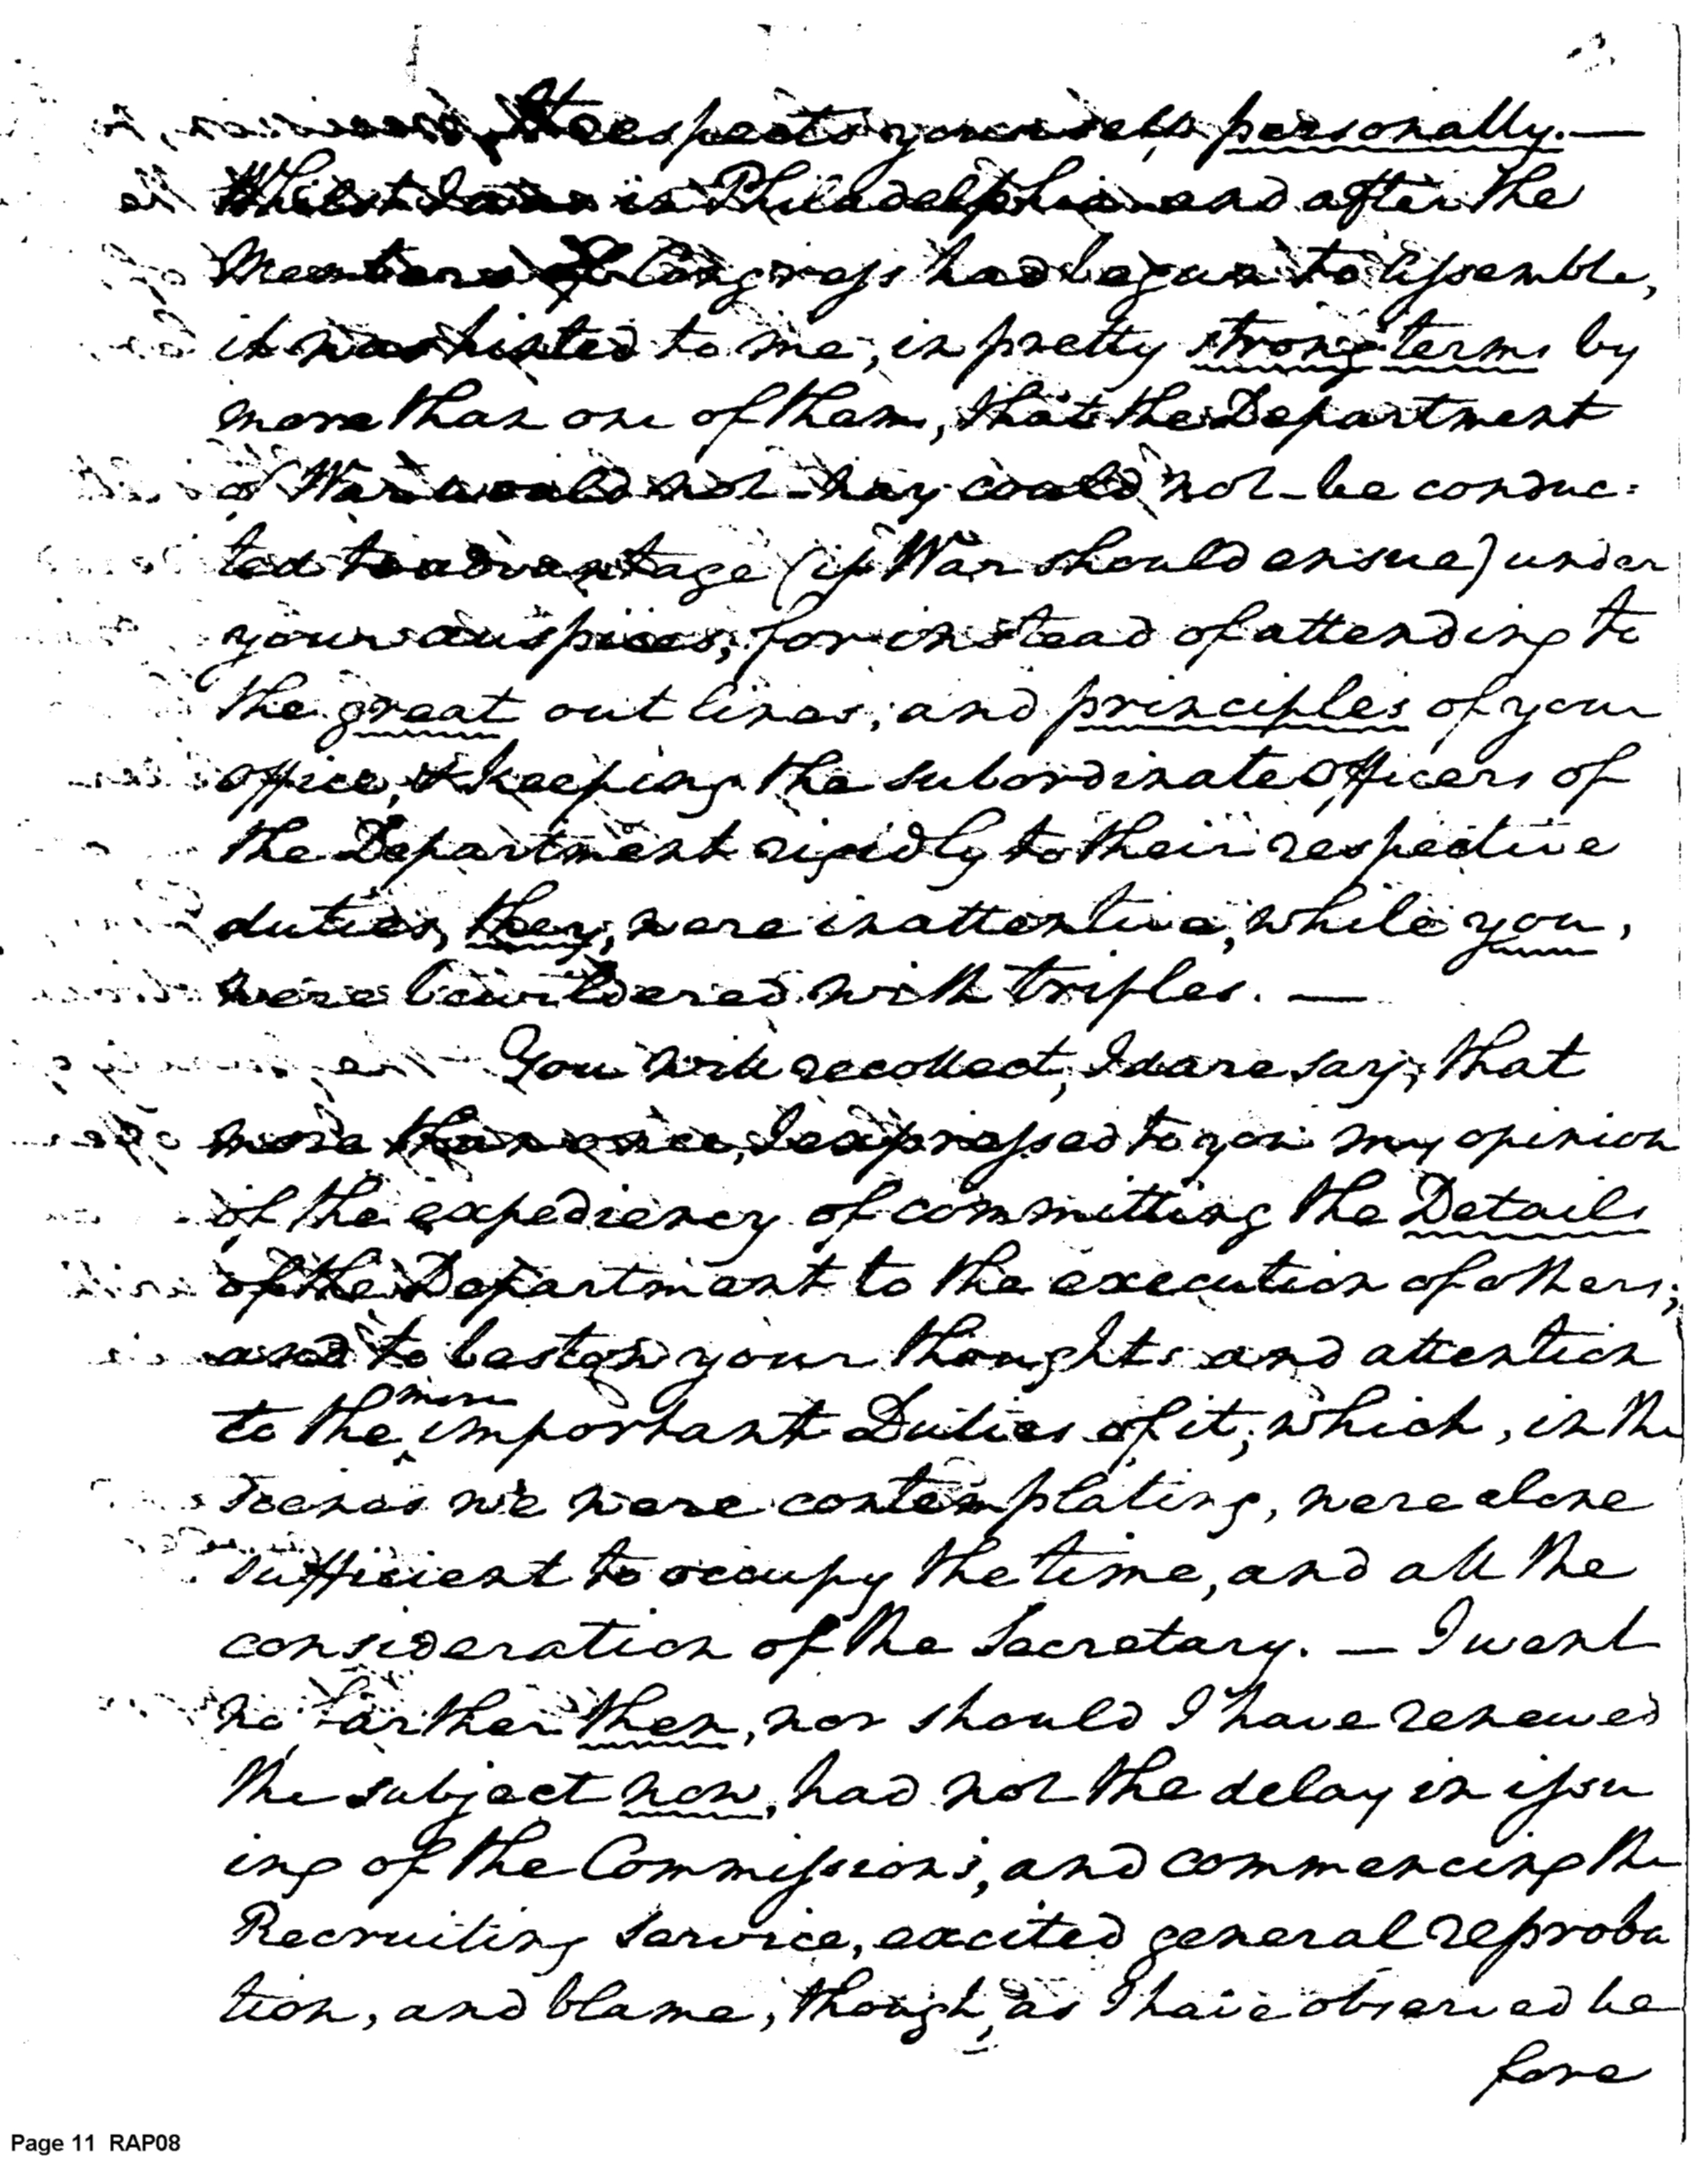 respects yourself personally.—
Whilst I was in Philadelphia and after the
Members of Congress had begun to assemble,
it was hinted to me, in pretty strong terms by
more than one of them, that the Department
of War would not—nay could not—be conduc=
ted to advantage (if War should ensue) under
your auspices, for instead of attending to
the great out lines, and principles of your
office, & keeping the subordinate Officers of
the Department rigidly to their respective
duties, they, were inattentive, while you,
were bewildered with trifles. —
You will recollect, I dare say, that
more than once, I expressed to you my opinion
of the expediency of committing the Details
of the Department to the execution of others;
and to bestow your thoughts and attention
to the more important Duties of it; which, in the
scenes we were contemplating, were alone
sufficient to occupy the time, and all the
consideration of the Secretary. — I went
no farther then, nor should I have renewed
the subject now, had not the delay in issu
ing of the Commissions, and commencing the
Recruiting service, excited general reproba
tion, and blame, though, as I have observed be
fore
Page 11 RAP08